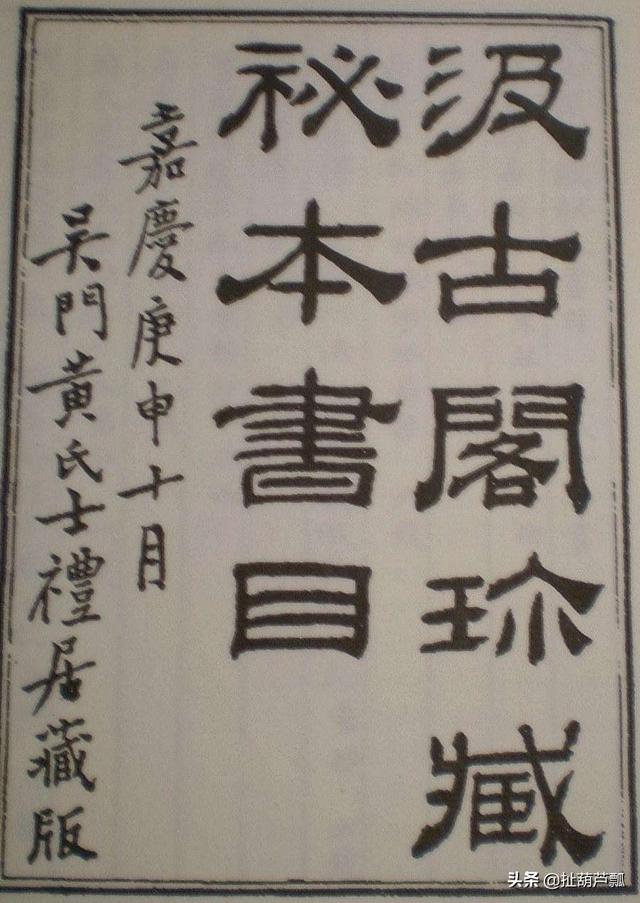 汲古閣珎藏
祕本書目
嘉慶庚申十月
吳門黃氏士禮居藏版
头条 @扯葫芦瓢